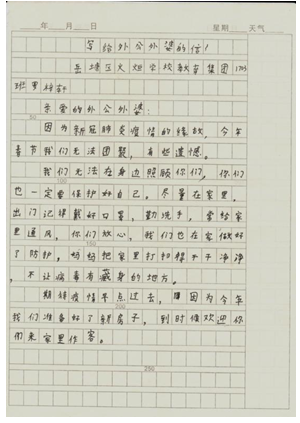 年 月 日 星期 天气
写给外公外婆的信!
岳塘区火炬学校教育集团1703
班罗梓轩
亲爱的外公外婆:
50
因为新冠肺炎疫情的缘故,今年
春节我们无法团聚,有些遗憾。
我们无法在身边照顾你们,你们
100
也一定要保护好自己。尽量在家里,
出门记得戴好口罩,勤洗手,常给家
里通风,你们放心,我们也在家做好
150
了防护,妈妈把家里打扫得干干净净
,不让病毒有藏身的地方。
期待疫情早点过去,因为今年
200
我们准备好了新房子,到时候欢迎你
们来家里作客。
250